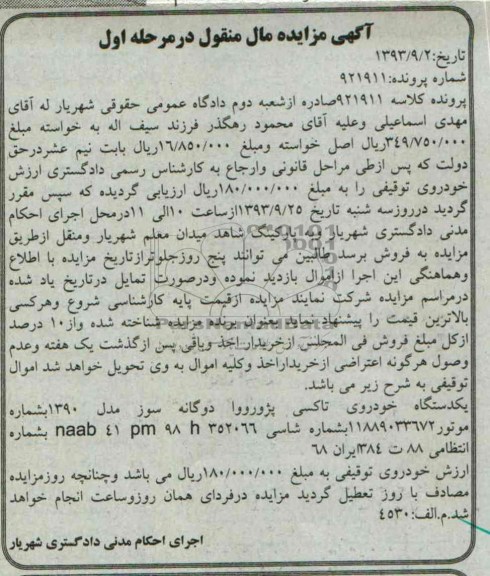 آگهی مزایده مال منقول درمرحله اول
تاریخ:۱۳۹۳/۹/۲
شماره پرونده:۹۲۱۹۱۱
پرونده کلاسه ۹۲۱۹۱۱صادره ازشعبه دوم دادگاه عمومی حقوقی شهریار له آقای
مهدی اسماعیلی وعلیه آقای محمود رهگذر فرزند سیف اله به خواسته مبلغ
۳۴۹/۷۵۰/۰۰۰ریال اصل خواسته ومبلغ ۱۶/۸۵۰/۰۰۰ریال بابت نیم عشردرحق
دولت که پس ازطی مراحل قانونی وارجاع به کارشناس رسمی دادگستری ارزش
خودروی توقیفی را به مبلغ ۱۸۰/۰۰۰/۰۰۰ریال ارزیابی گردیده که سپس مقرر
گردید درروزسه شنبه تاریخ ۱۳۹۳/۹/۲۵ازساعت ۱۰الی ۱۱درمحل اجرای احکام
مدنی دادگستری شهریار به پارکینگ شاهد میدان معلم شهریار ومنقل ازطریق
مزایده به فروش برسد طالبین می توانند پنج روزجلوترازتاریخ مزایده با اطلاع
وهماهنگی این اجرا ازاموال بازدید نموده ودرصورت تمایل درتاریخ یاد شده
درمراسم مزایده شرکت نمایند مزایده ازقیمت پایه کارشناسی شروع وهرکسی
بالاترین قیمت را پیشنهاد نماید بعنوان برنده مزایده شناخته شده واز۱۰ درصد
ازکل مبلغ فروش فی المجلس ازخریدار اخذ وباقی پس ازگذشت یک هفته وعدم
وصول هرگونه اعتراضی ازخریداراخذ وکلیه اموال به وی تحویل خواهد شد اموال
توقیفی به شرح زیر می باشد.
یکدستگاه خودروی تاکسی پژورووا دوگانه سوز مدل ۱۳۹۰بشماره
موتور۱۱۸۸۹۰۳۳۶۷۲بشماره شاسی naab ٤١ pm ۹۸ h ۳۵۲۰۶۶ بشماره
انتظامی ۸۸ ت ۳۸٤ایران ۶۸
ارزش خودروی توقیفی به مبلغ ۱۸۰/۰۰۰/۰۰۰ریال می باشد وچنانچه روزمزایده
مصادف با روز تعطیل گردید مزایده درفردای همان روزوساعت انجام خواهد
شد.م.الف:٤۵۳۰
اجرای احکام مدنی دادگستری شهریار